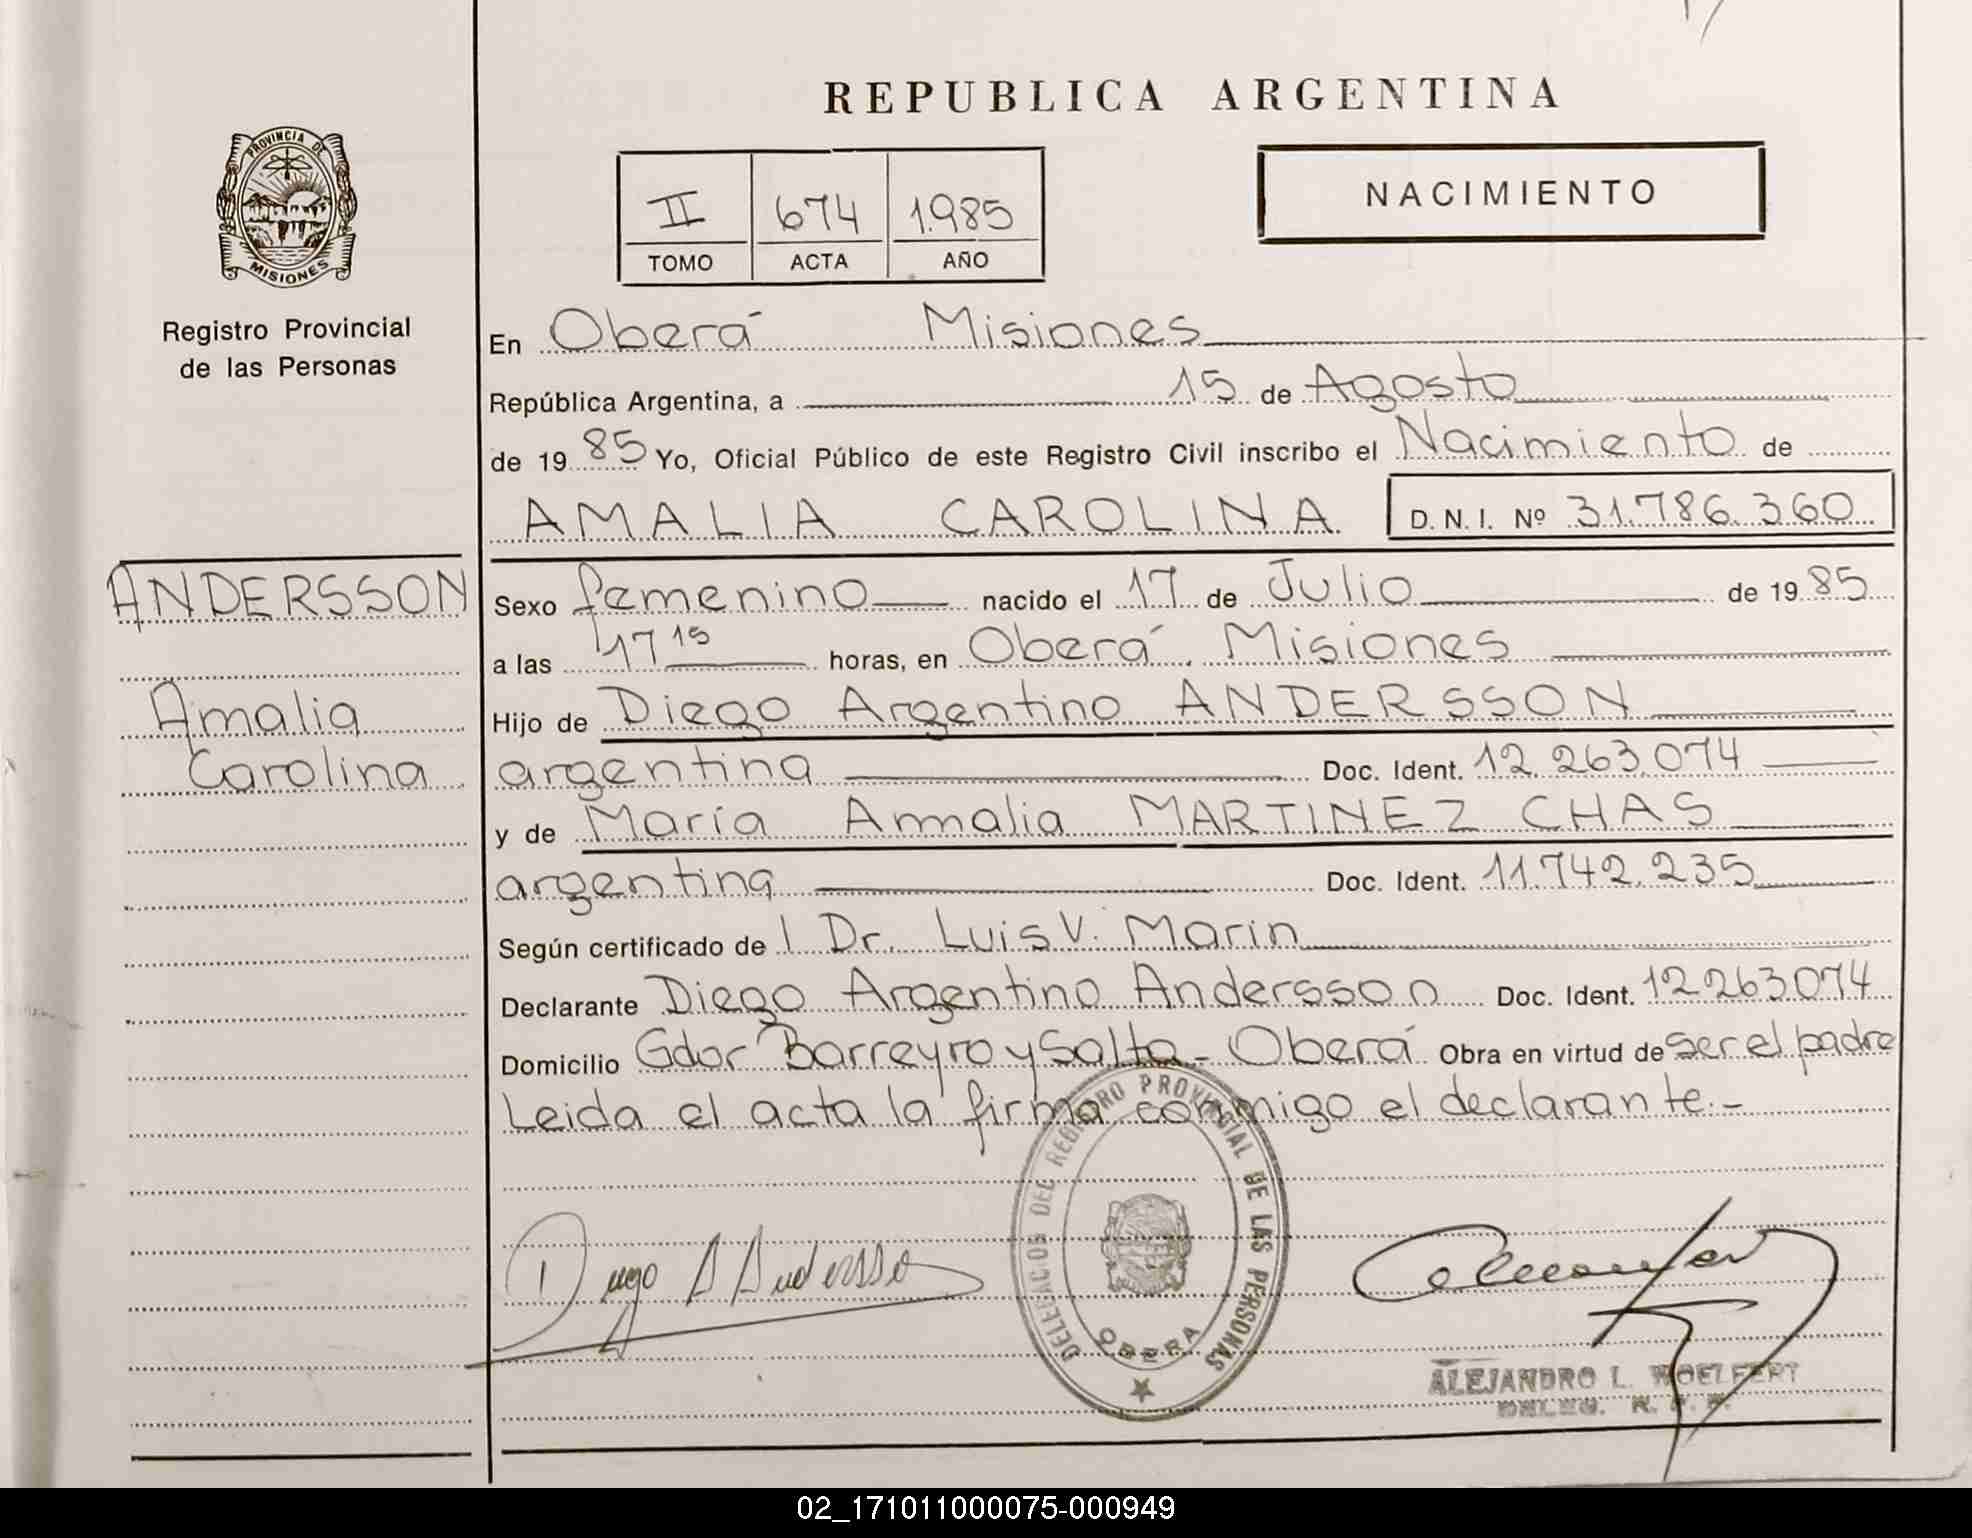 REPUBLICA ARGENTINA
PROVINCIA DE
MISIONES
Registro Provincial
de las Personas
II 674 1.985
TOMO ACTA AÑO
NACIMIENTO
En Oberá Misiones
República Argentina, a 15 de Agosto
de 19 85 Yo, Oficial Público de este Registro Civil inscribo el Nacimiento de
AMALIA CAROLINA D. N. I. Nº 31.786.360
ANDERSSON
Amalia
Carolina
Sexo femenino nacido el 17 de Julio de 19 85
a las 17 15 horas, en Oberá Misiones
Hijo de Diego Argentino ANDERSSON
argentina Doc. Ident. 12.263.074
y de María Amalia MARTINEZ CHAS
argentina Doc. Ident. 11.742.235
Según certificado de l Dr. Luis V. Marin
Declarante Diego Argentino Andersson Doc. Ident. 12263074
Domicilio Gdor Barreyro y Salta - Oberá Obra en virtud de ser el padre
Leida el acta la firma conmigo el declarante.-
DEL REGISTRO PROVINCIAL DE LAS PERSONAS
OBERA
Diego A Andersso
ALEJANDRO L. WOELFERT
02_171011000075-000949